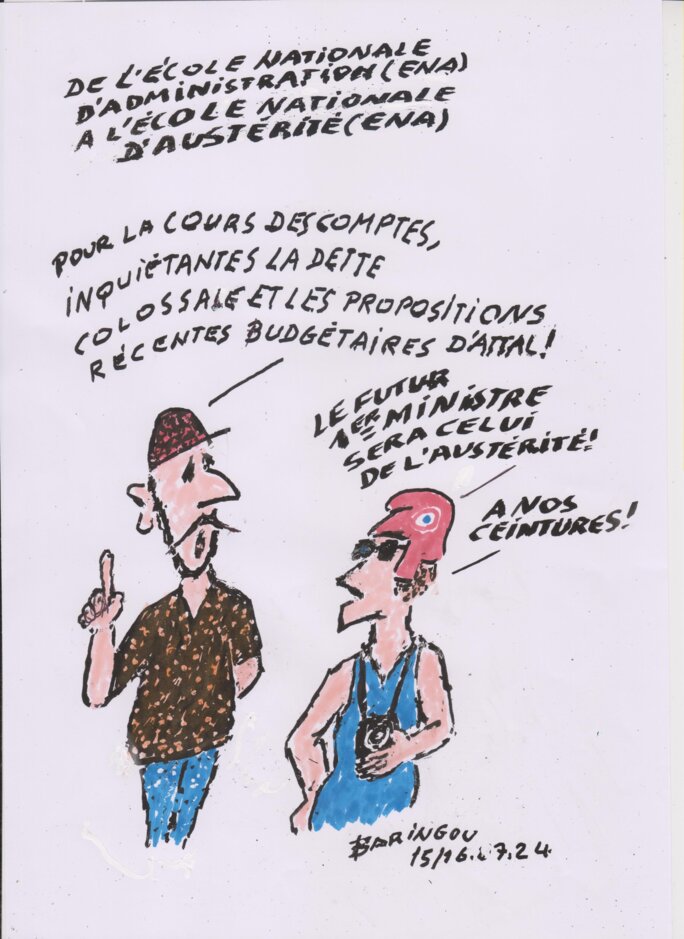 DE L'ÉCOLE NATIONALE
D'ADMINISTRATION (ENA)
A L'ÉCOLE NATIONALE
D'AUSTÉRITÉ (ENA)
POUR LA COURS DES COMPTES,
INQUIÉTANTES LA DETTE
COLOSSALE ET LES PROPOSITIONS
RÉCENTES BUDGÉTAIRES D'ATTAL!
LE FUTUR
1ER MINISTRE
SERA CELUI
DE L'AUSTÉRITÉ!
A NOS
CEINTURES!
BARINGOU
15/16.07.24